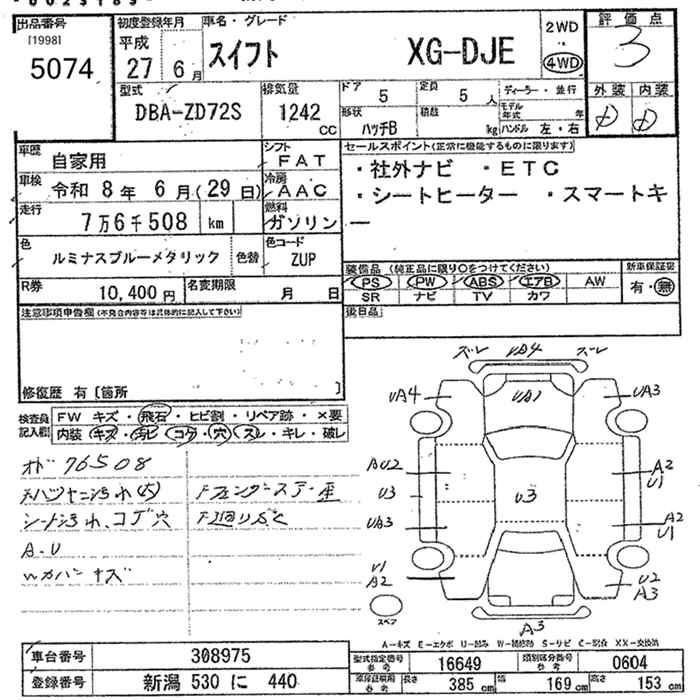 出品番号
[1998]
5074
初度登録年月
平成
27 6 月
車名・グレード
スイフト XG-DJE
2WD
4WD
評価点
3
外装 内装
D D
型式
DBA-ZD72S
排気量
1242 cc
ドア 5
定員 5 人
形状 ハッチB
積載 kg
ディーラー・並行
モデル年式 年
ハンドル 左・右
車歴 自家用
車検 令和 8 年 6 月 (29 日)
走行 7万6千508 km
シフト FAT
冷房 AAC
燃料 ガソリン
セールスポイント(正常に機能するものに限ります)
・社外ナビ ・ETC
・シートヒーター ・スマートキ
ー
色 ルミナスブルーメタリック 色替
色コード ZUP
R券 10,400 円
名変期限 月 日
装備品 (純正品に限り○をつけてください)
PS PW ABS エアB AW
SR ナビ TV カワ
新車保証書
有・無
後日品
注意事項申告欄(不具合内容等は具体的に記入して下さい)
修復歴 有 [箇所 ]
検査員記入欄
FW キズ・飛石・ヒビ割・リペア跡・×要
内装 キズ・汚ヒ・コゲ・穴・スレ・キレ・破レ
オド 76508
シート汚れ、コゲ穴
A.U
ズレ UA4 ズレ
UA4 UA1 UA3
AU2 A2
U1
U3 U3
UA3 A2
U1
U1
A2
U2
A3
スペア
A3
A-キズ E-エクボ U-凹み W-補修跡 S-サビ C-腐食 XX-交換済
車台番号 308975
登録番号 新潟 530 に 440
型式指定番号 参考 16649
類別区分番号 参考 0604
車庫証明用 参考 長さ 385 cm 幅 169 cm 高さ 153 cm